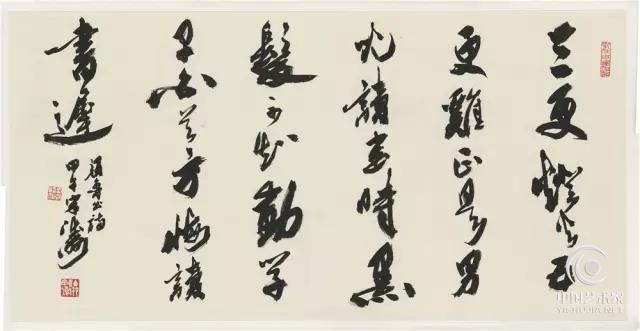 三更燈火五
更雞正是男
兒讀書時黑
髮不知勤学
早白首方悔讀
書遲
顏真卿詩
甲午
中国艺术家
YISHUJIA.NET